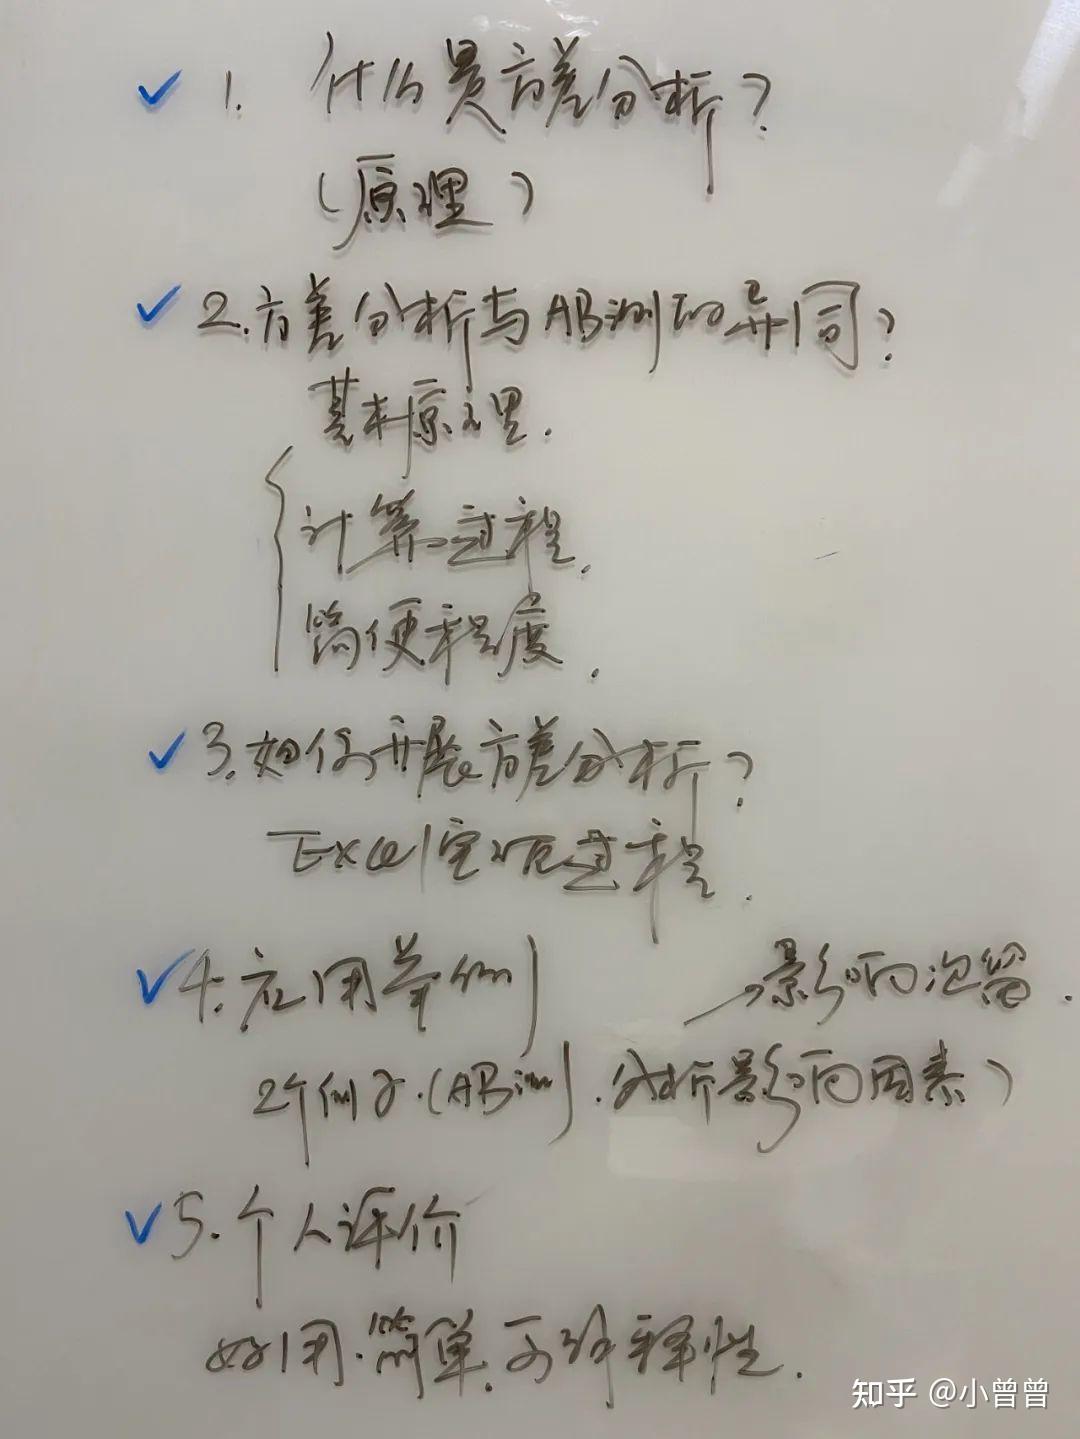 ✓ 1. 什么是方差分析？
（原理）
✓ 2. 方差分析与AB测的异同？
基本原理.
计算过程.
简便程度.
✓ 3. 如何开展方差分析？
Excel实现过程.
✓ 4. 应用举例
→影响次留.
2个例子.（AB测.分析影响因素）
✓ 5. 个人评价
好用.简单.可解释性.
知乎 @小曾曾